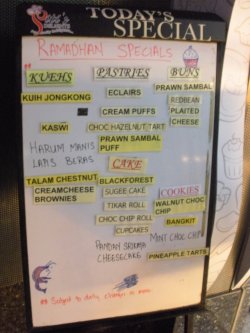 TODAY'S
SPECIAL
RAMADHAN SPECIALS
KUEHS
KUIH JONGKONG
KASWI
HARUM MANIS
LAPIS BERAS
TALAM CHESTNUT
CREAMCHEESE
BROWNIES
PASTRIES
ECLAIRS
CREAM PUFFS
CHOC HAZELNUT TART
PRAWN SAMBAL
PUFF
CAKE
BLACKFOREST
SUGEE CAKE
TIKAR ROLL
CHOC CHIP ROLL
CUPCAKES
PANDAN SRIKAYA
CHEESECAKE
BUNS
PRAWN SAMBAL
REDBEAN
PLAITED
CHEESE
COOKIES
WALNUT CHOC
CHIP
BANGKIT
MINT CHOC CHIP
PINEAPPLE TARTS
** Subject to daily changes in menu